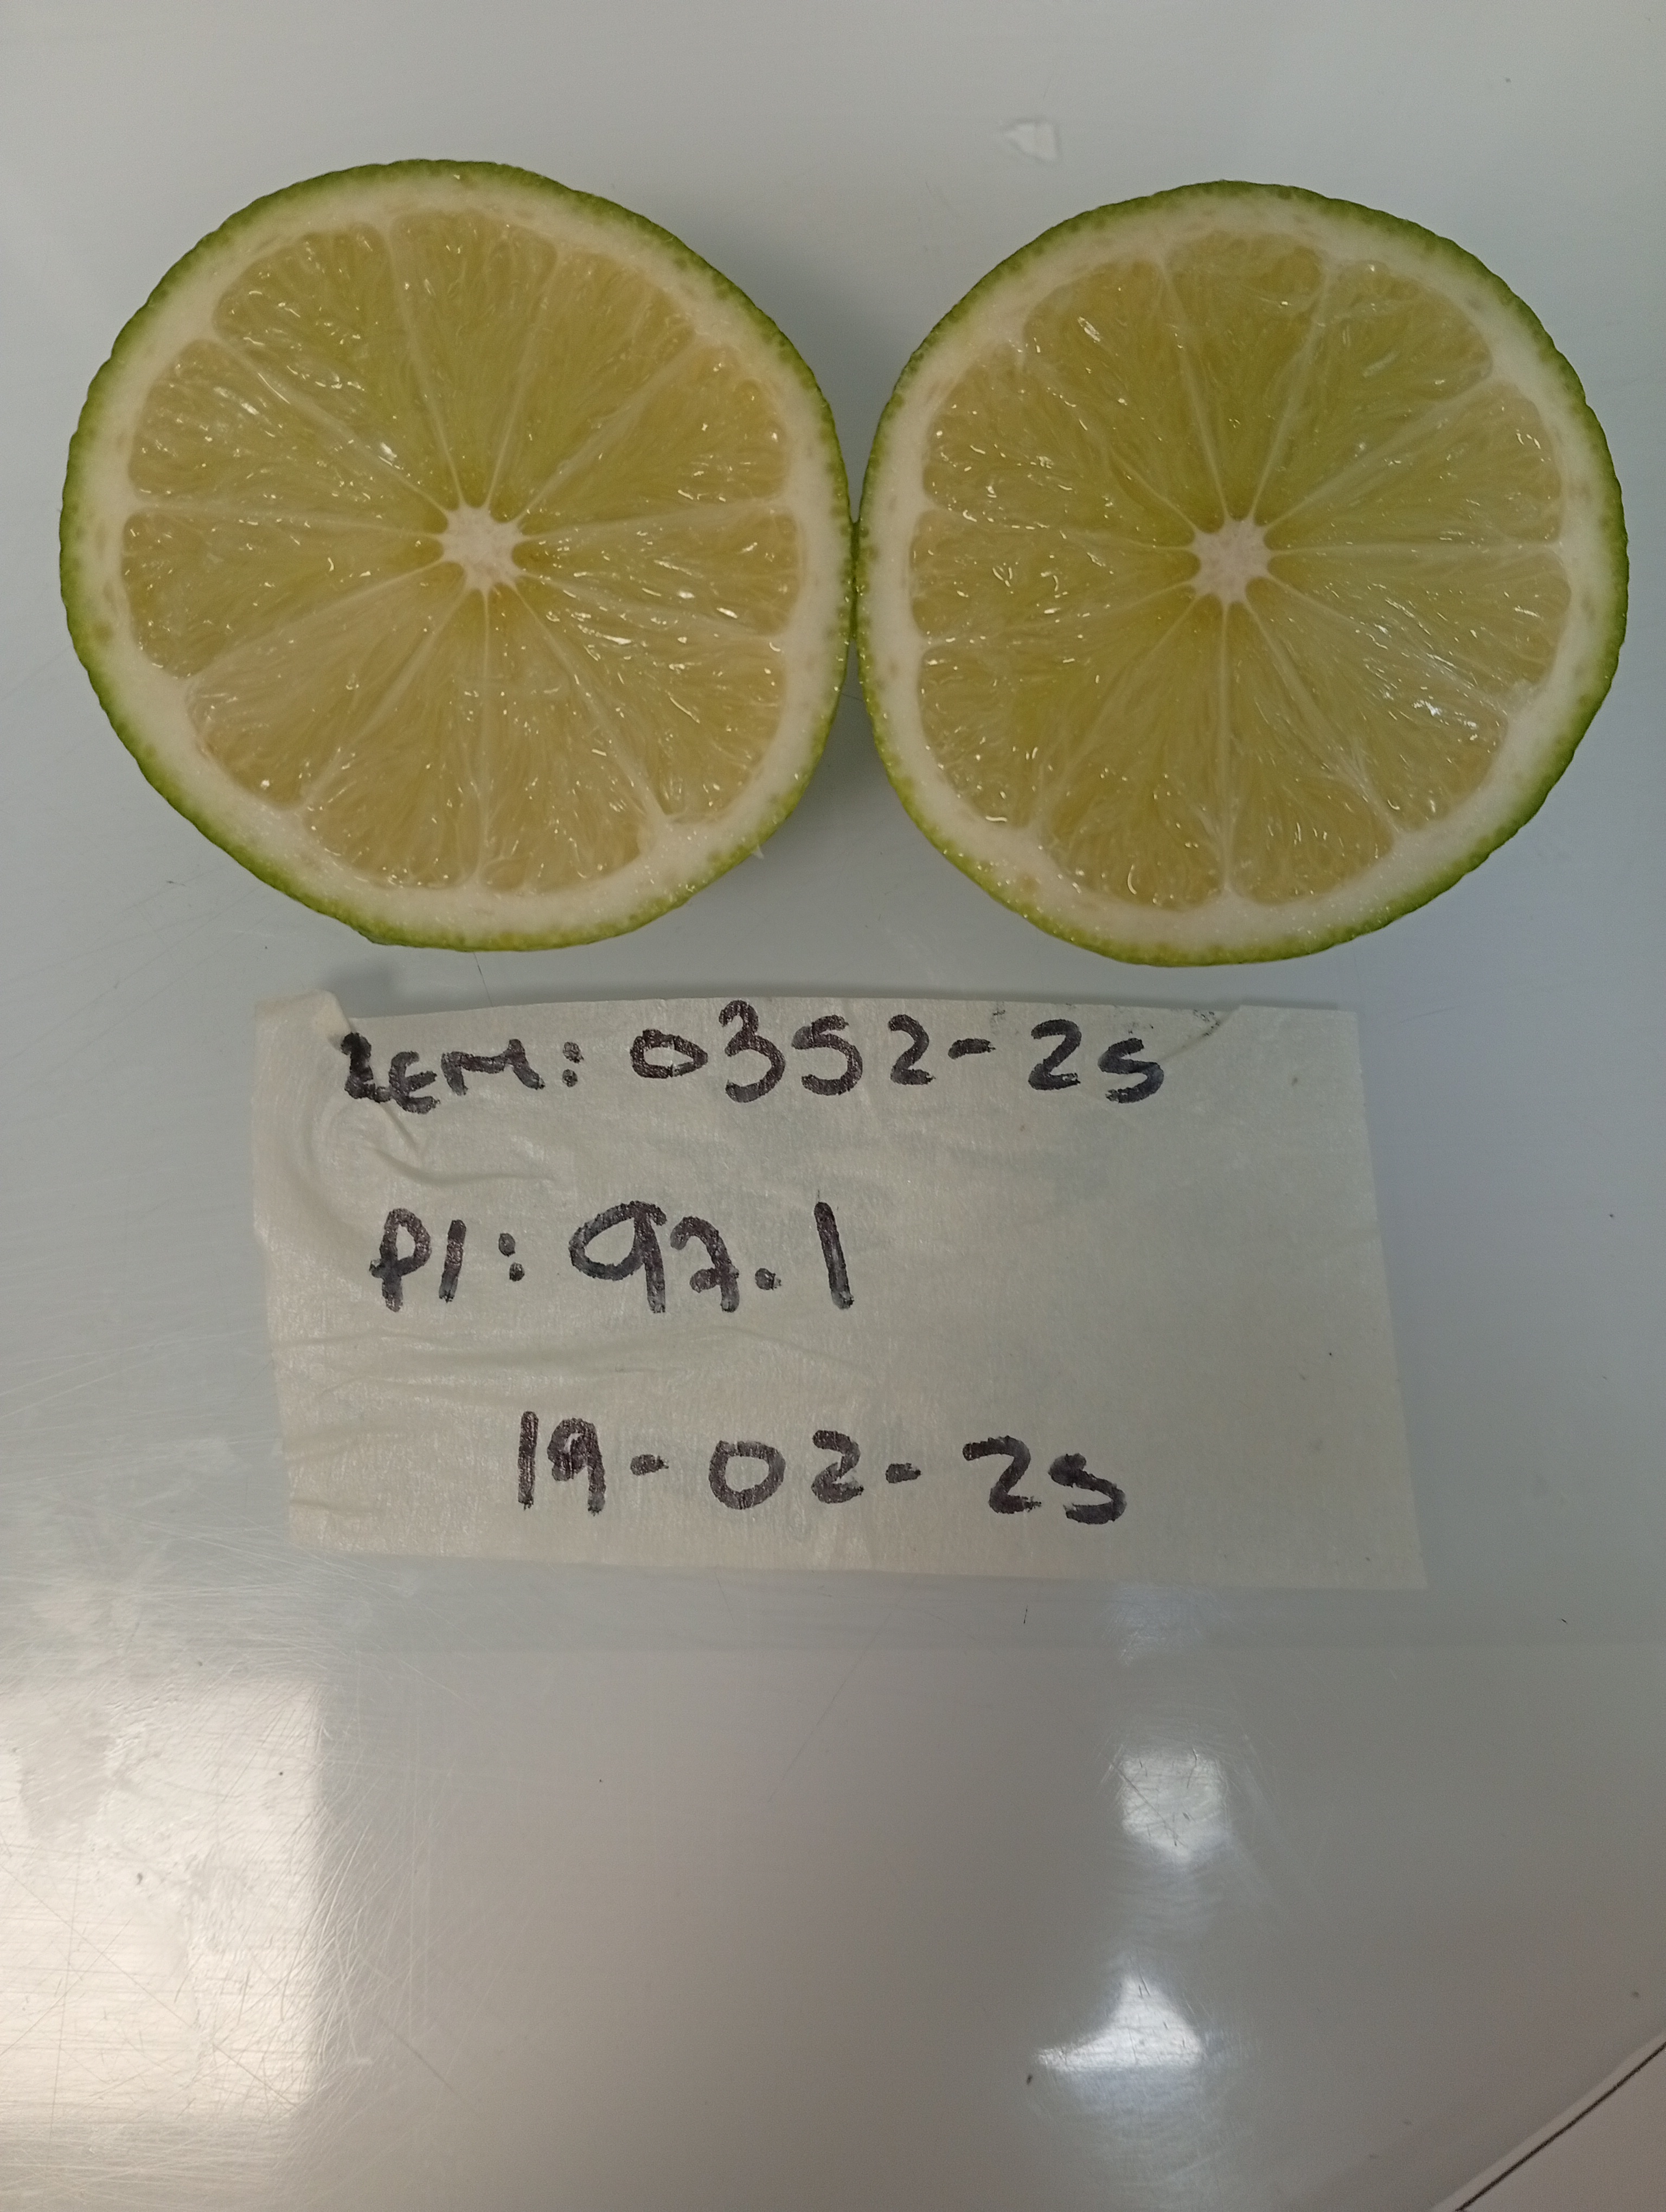 REM: 0352-25
PI: 97.1
19-02-25